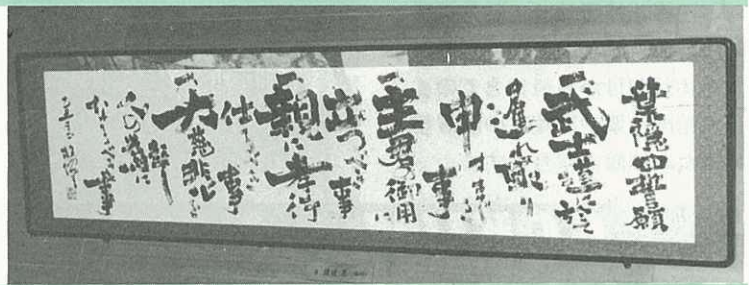 葉隠四誓願
一、武士道に於て
遅れ取り
申すまじき事
一、主君の御用に
立つべき事
一、親に孝行
仕るべき事
一、大慈悲を
起し
人の為に
なるべき事